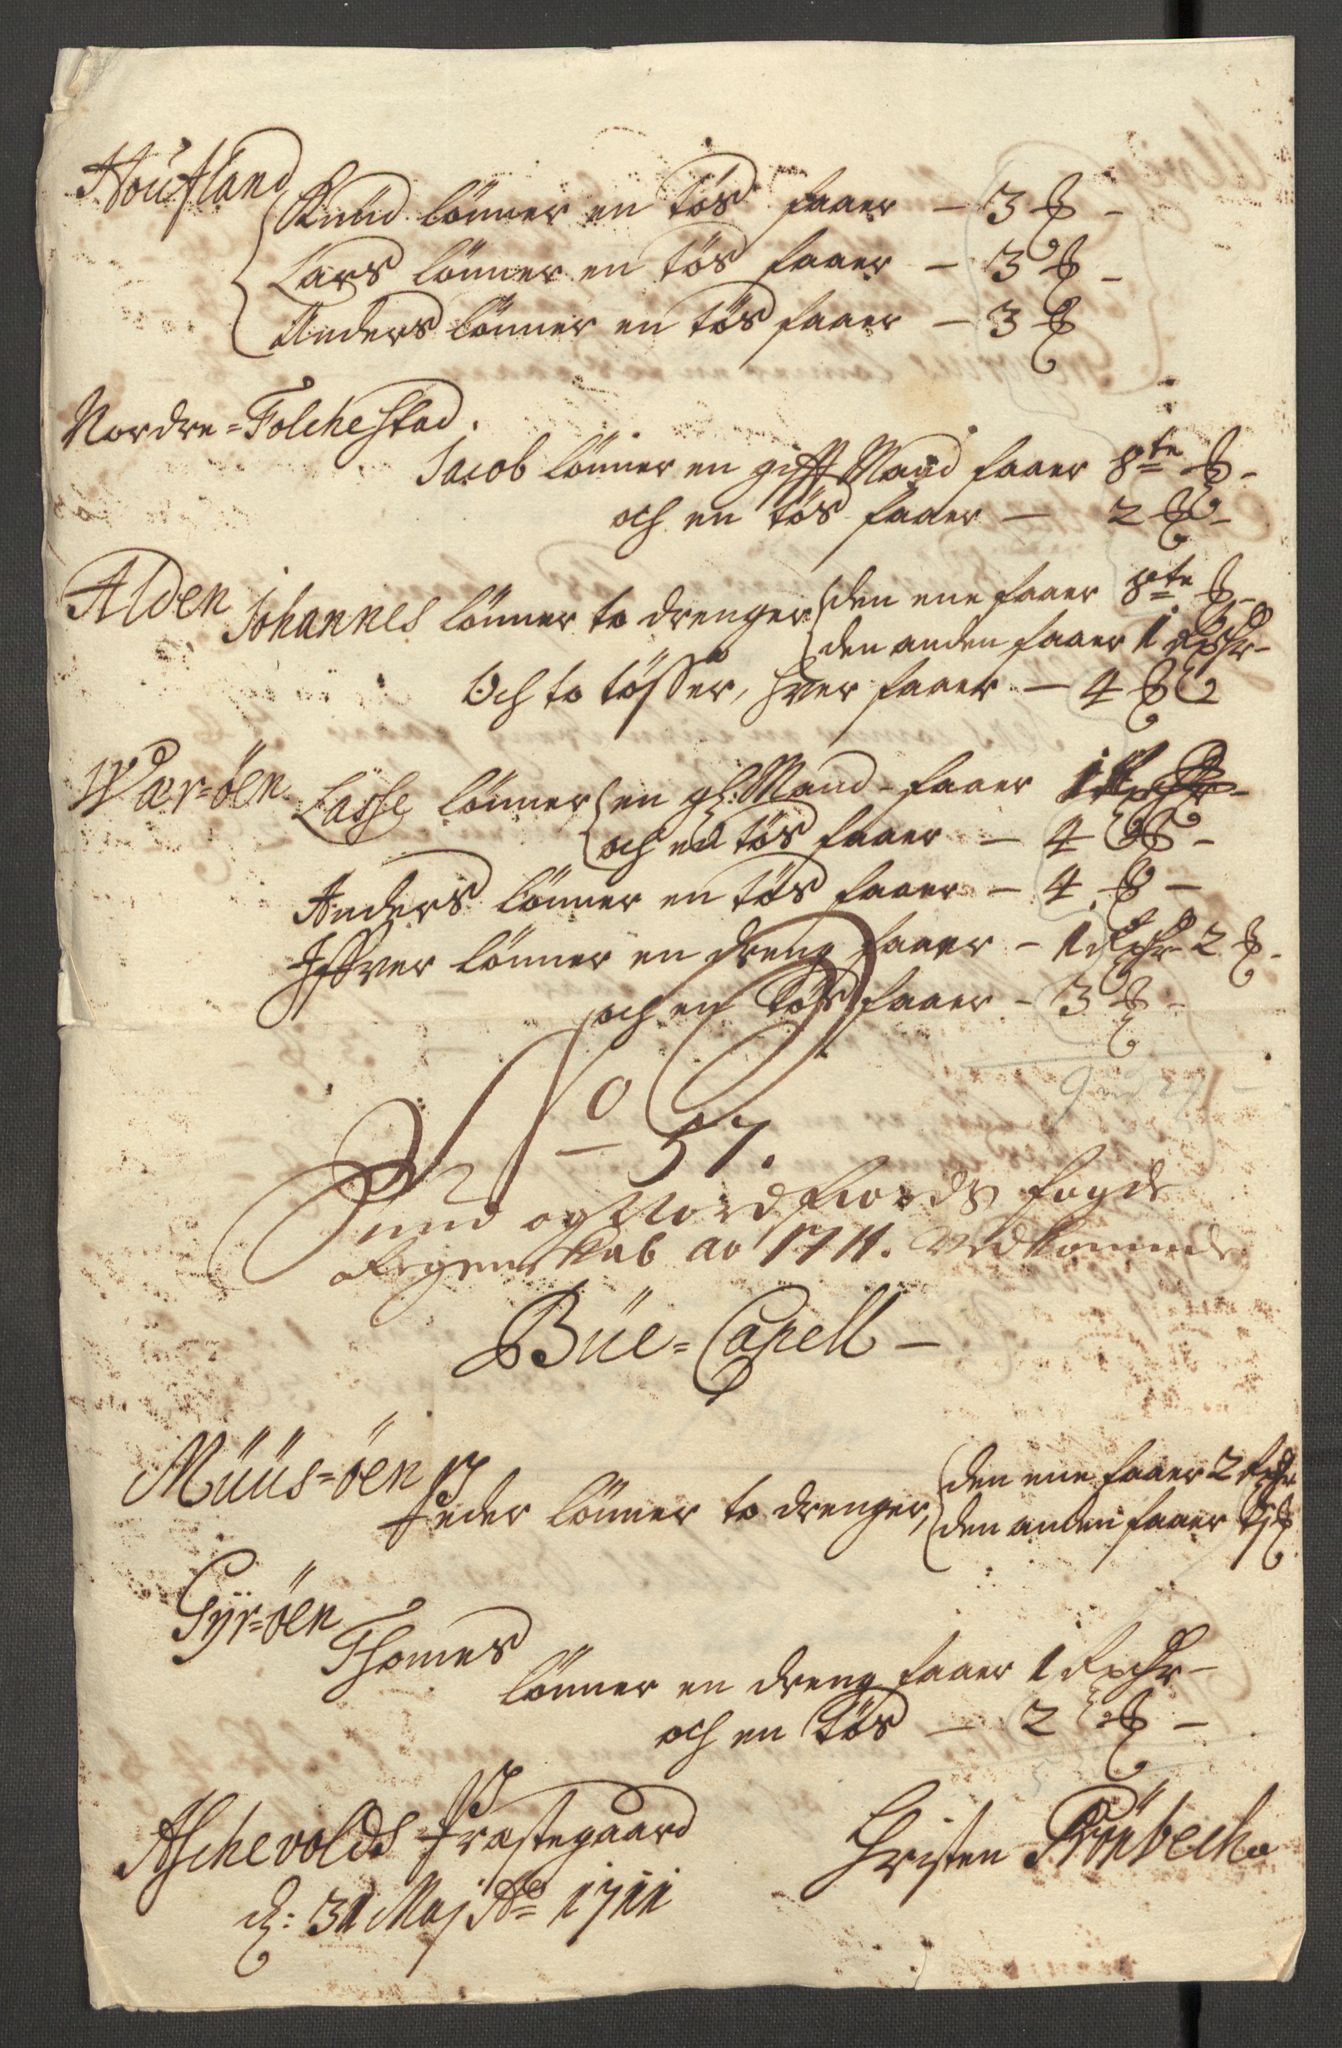 Houfland
Knud lønner en tøs faaer — 3 ℔ -
Lars lønner en tøs faaer — 3 ℔ -
Anders lønner en tøs faaer — 3 ℔
Nordre=Folchestad.
Jacob lønner en gifft Mand faaer 8te ℔ -
och en tøs faaer — 2 ℔ -
Alden Johannes lønner to drenger den ene faaer 8te ℔ -
den anden faaer 1 Rxdr -
Och to tøsser, hver faaer — 4 ℔
Wær=øen Lasse lønner en gl: Mand - faaer
och en tøs faaer — 4 ℔ -
Anders lønner en tøs faaer — 4 ℔ -
Iffver lønner en dreng faaer - 1 Rxdr 2 ℔ -
och en tøs faaer - 3 ℔ -
No 57.
Sund og Nordfiords fogde
Regenskab ao 1711. vedkommende
Büe=Capell -
Müüs=øen
Peder lønner to drenger, den ene faaer 2 Rxdr
den anden faaer
Gyr=øen
Thomes
lønner en dreng faaer 1 Rxdr -
och en tøs — 2 ℔ -
Aschevolds Præstegaard
d: 31 Maj Ao 1711
Christen